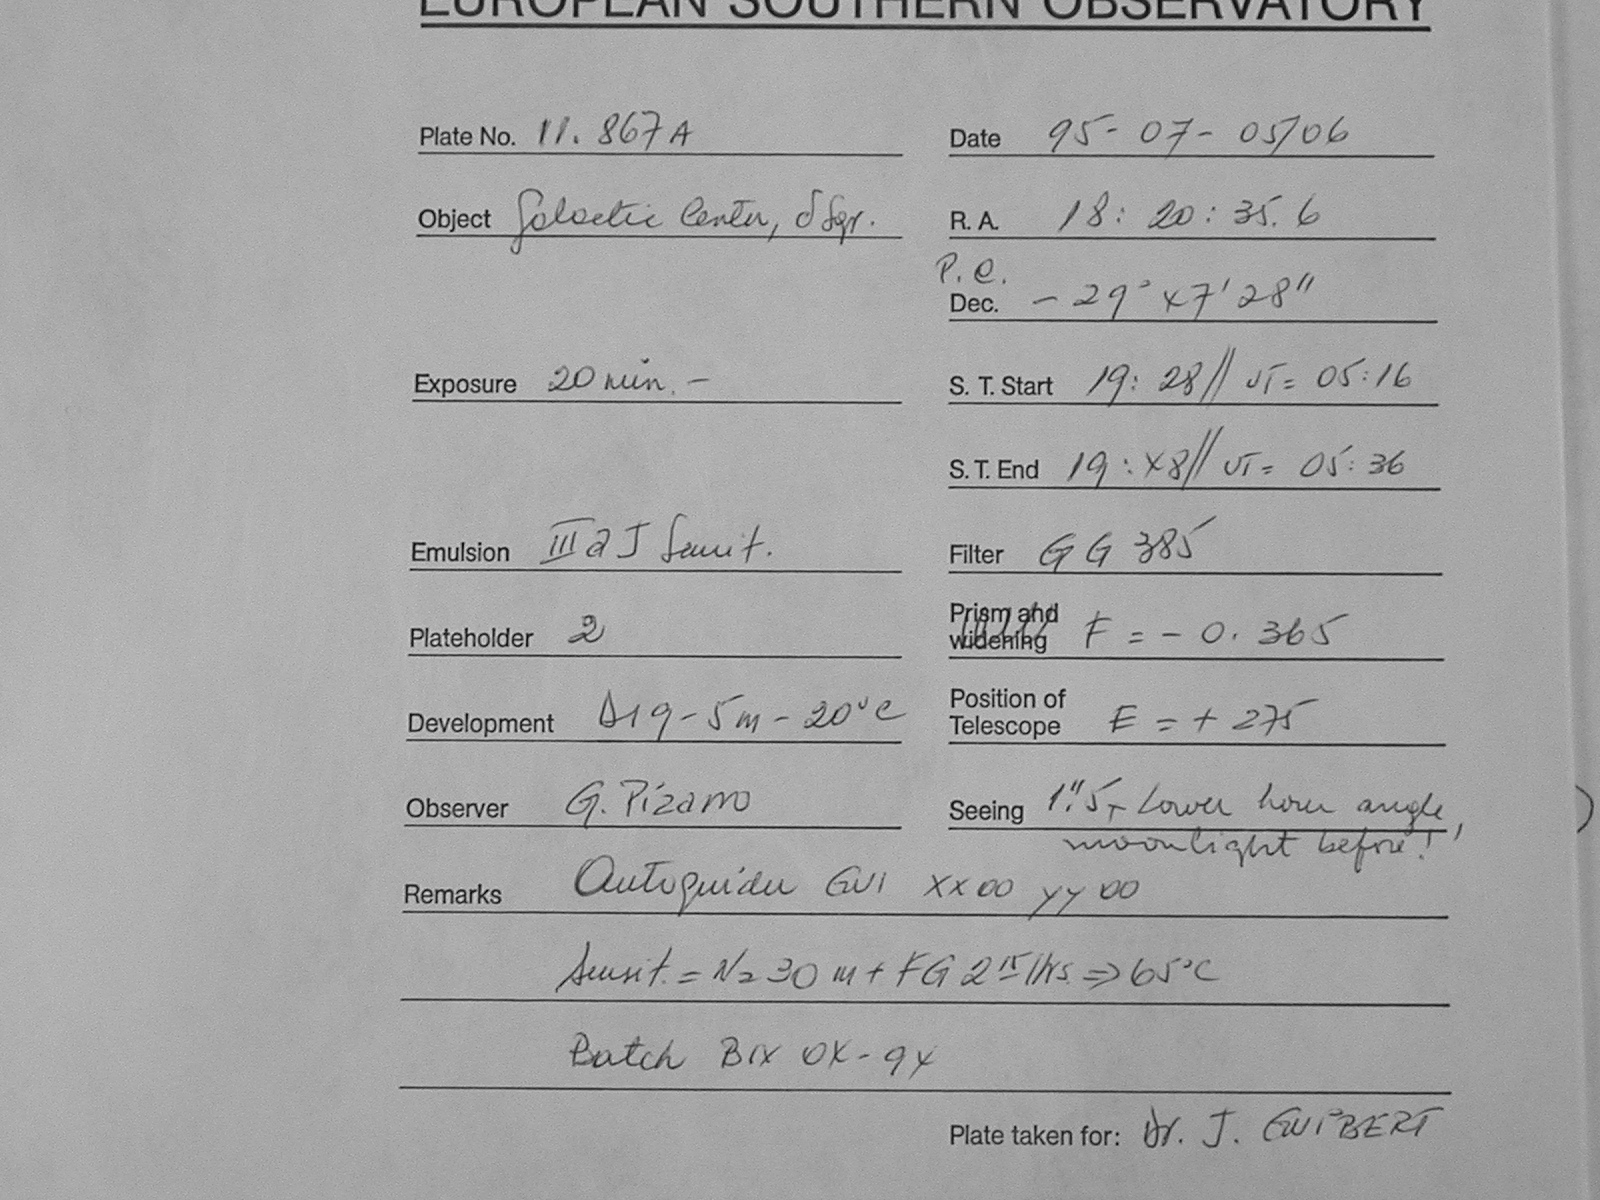 EUROPEAN SOUTHERN OBSERVATORY
Plate No. 11.867A
Date 95-07-05/06
Object Galactic Center, δ Sgr.
R. A. 18: 20: 35.6
P.C.
Dec. - 29° 47' 28"
Exposure 20 min. -
S. T. Start 19: 28// UT= 05:16
S. T. End 19:48// UT= 05:36
Emulsion III a J Sensit.
Filter GG 385
Plateholder 2
Prism and widening F = - 0.365
Development D19-5m-20°C
Position of Telescope E = + 275
Observer G. Pizarro
Seeing 1."5, Lower hour angle,
moonlight before!
Remarks Autoguider GUI XX00 YY00
Sensit. = N2 30 m + FG 2 15 hrs. => 65°C
Batch 04-94
Plate taken for: Dr. J. GUIBERT